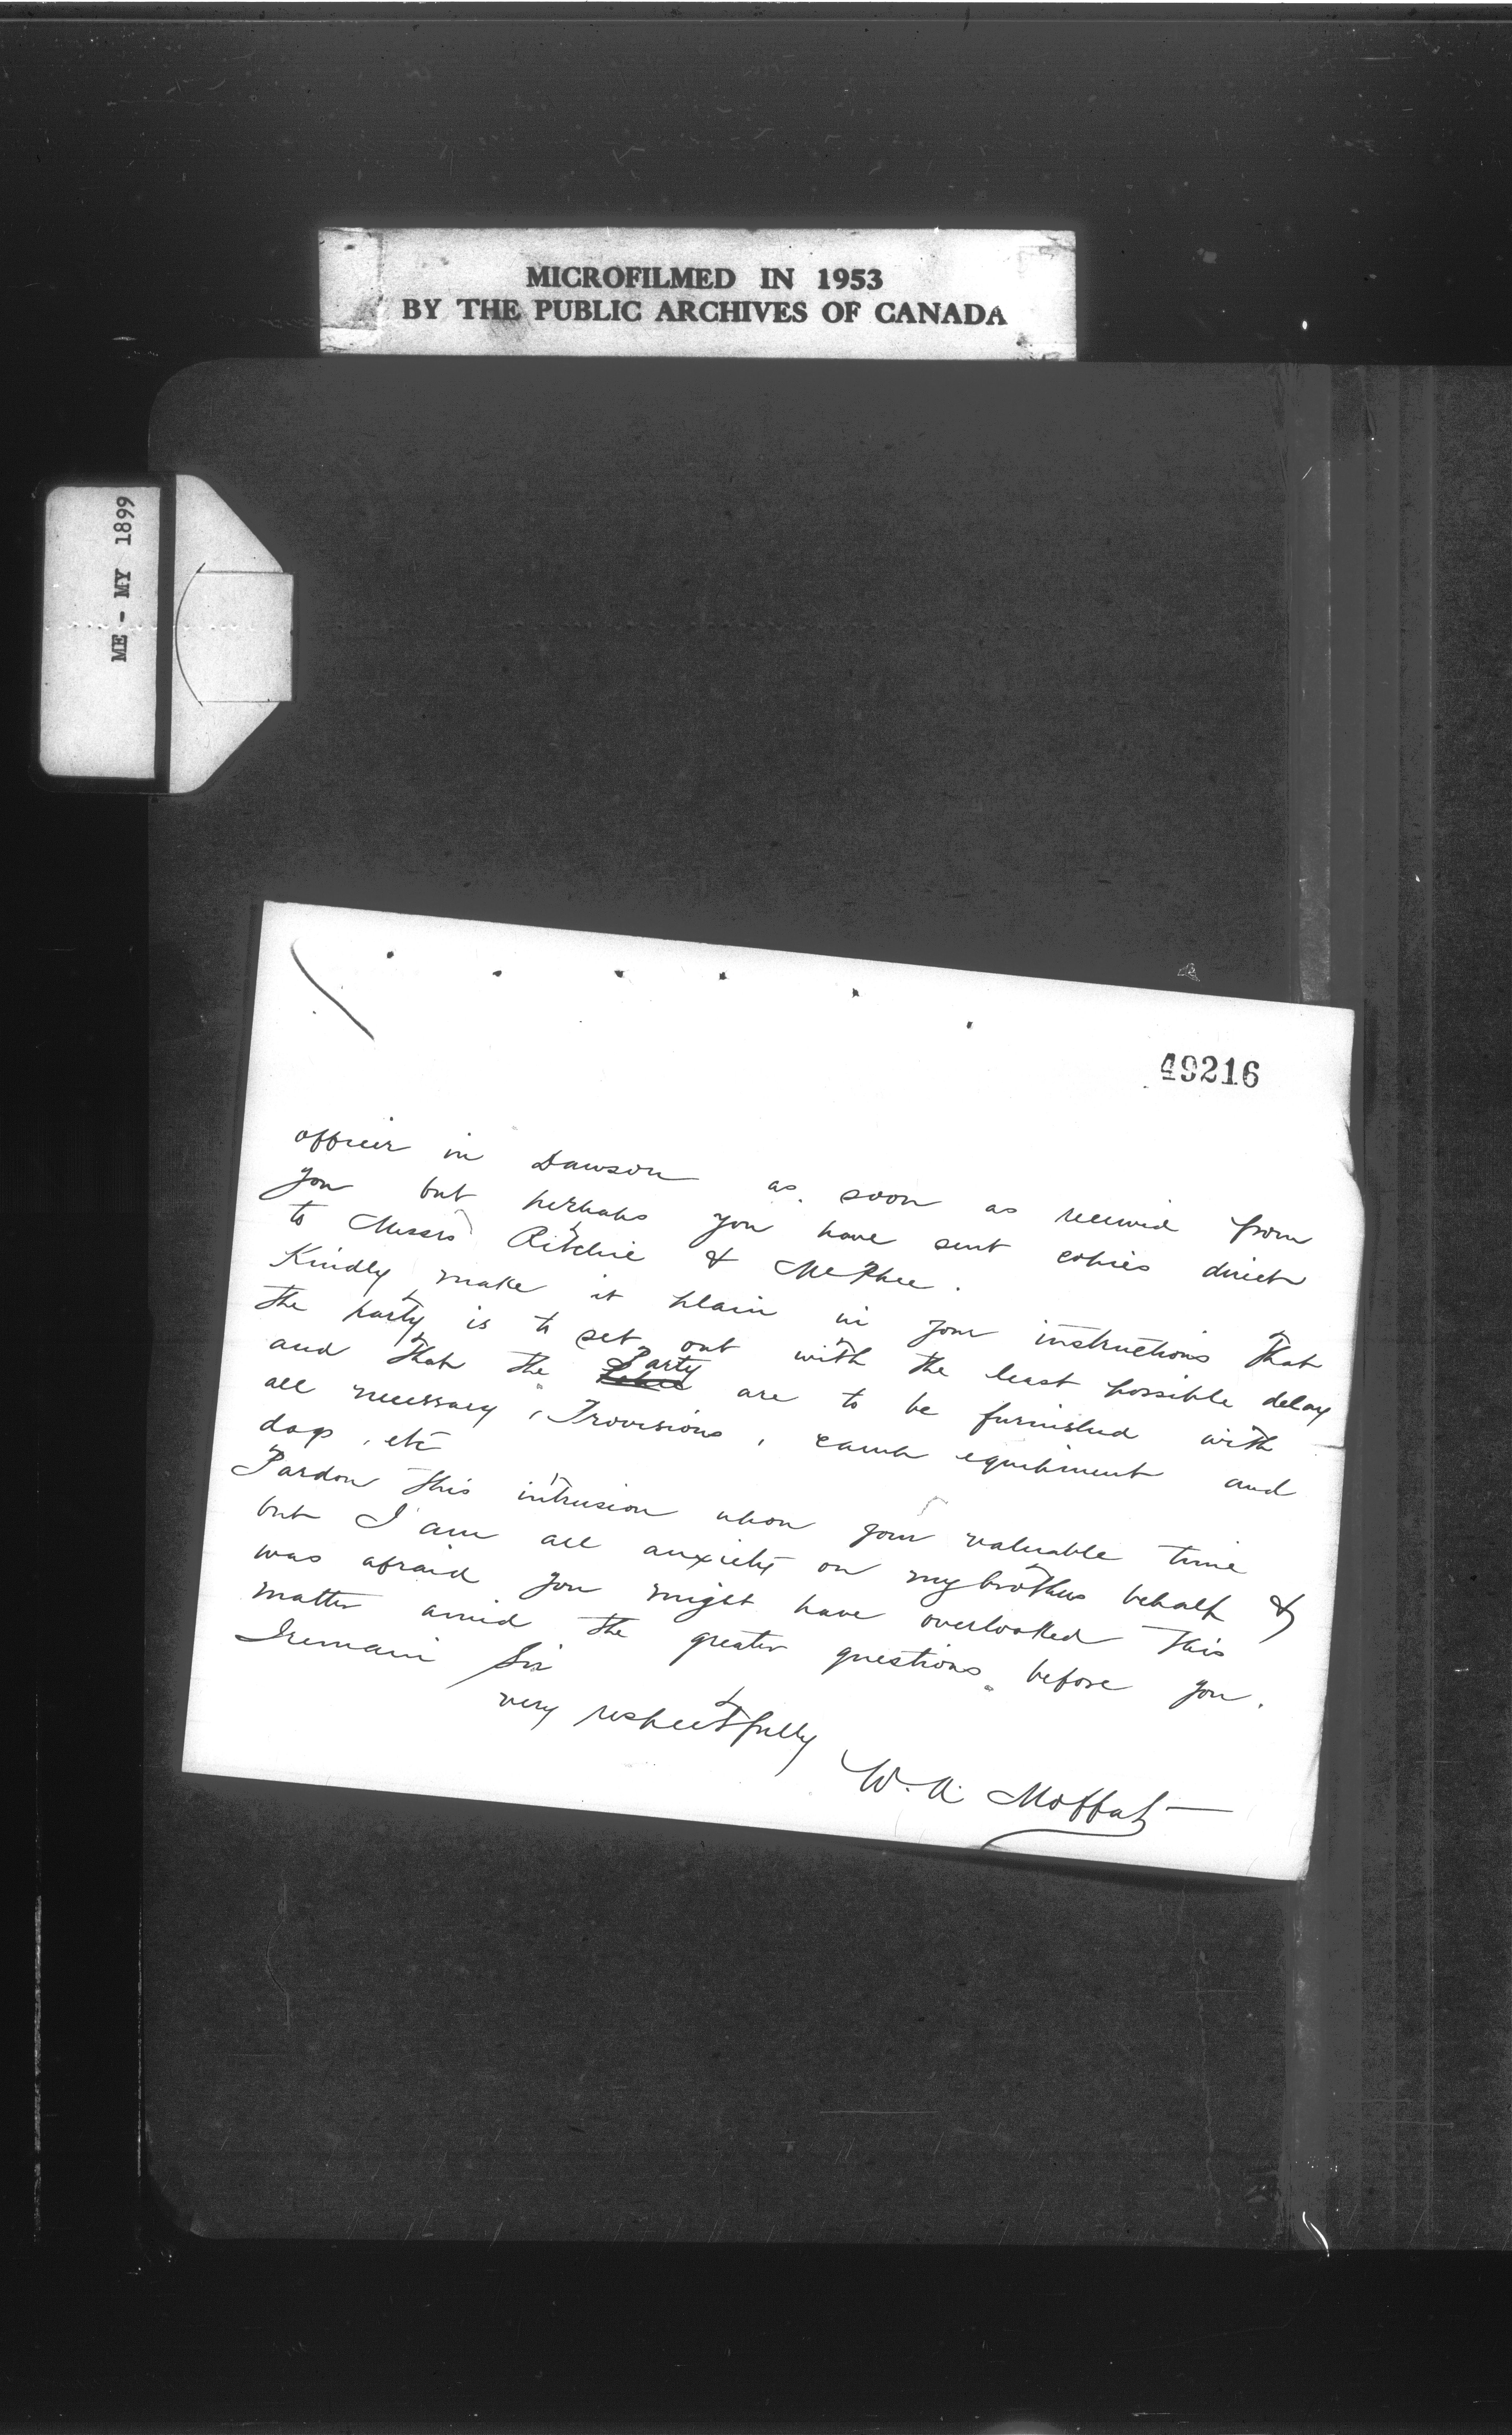 MICROFILMED IN 1953
BY THE PUBLIC ARCHIVES OF CANADA
ME - MY 1899
49216
officer in Dawson as soon as received from
you but perhaps you have sent copies direct
to Messrs Ritchie & McPhee.
Kindly make it plain in your instructions that
the party is to set out with the least possible delay
and that the Party are to be furnished with
all necessary, Provisions, camp equipment and
dogs, etc
Pardon this intrusion upon your valuable time
but I am all anxiety on my brothers behalf &
was afraid you might have overlooked this
matter amid the greater questions before you.
I remain Sir
very respectfully
W. A. Moffat